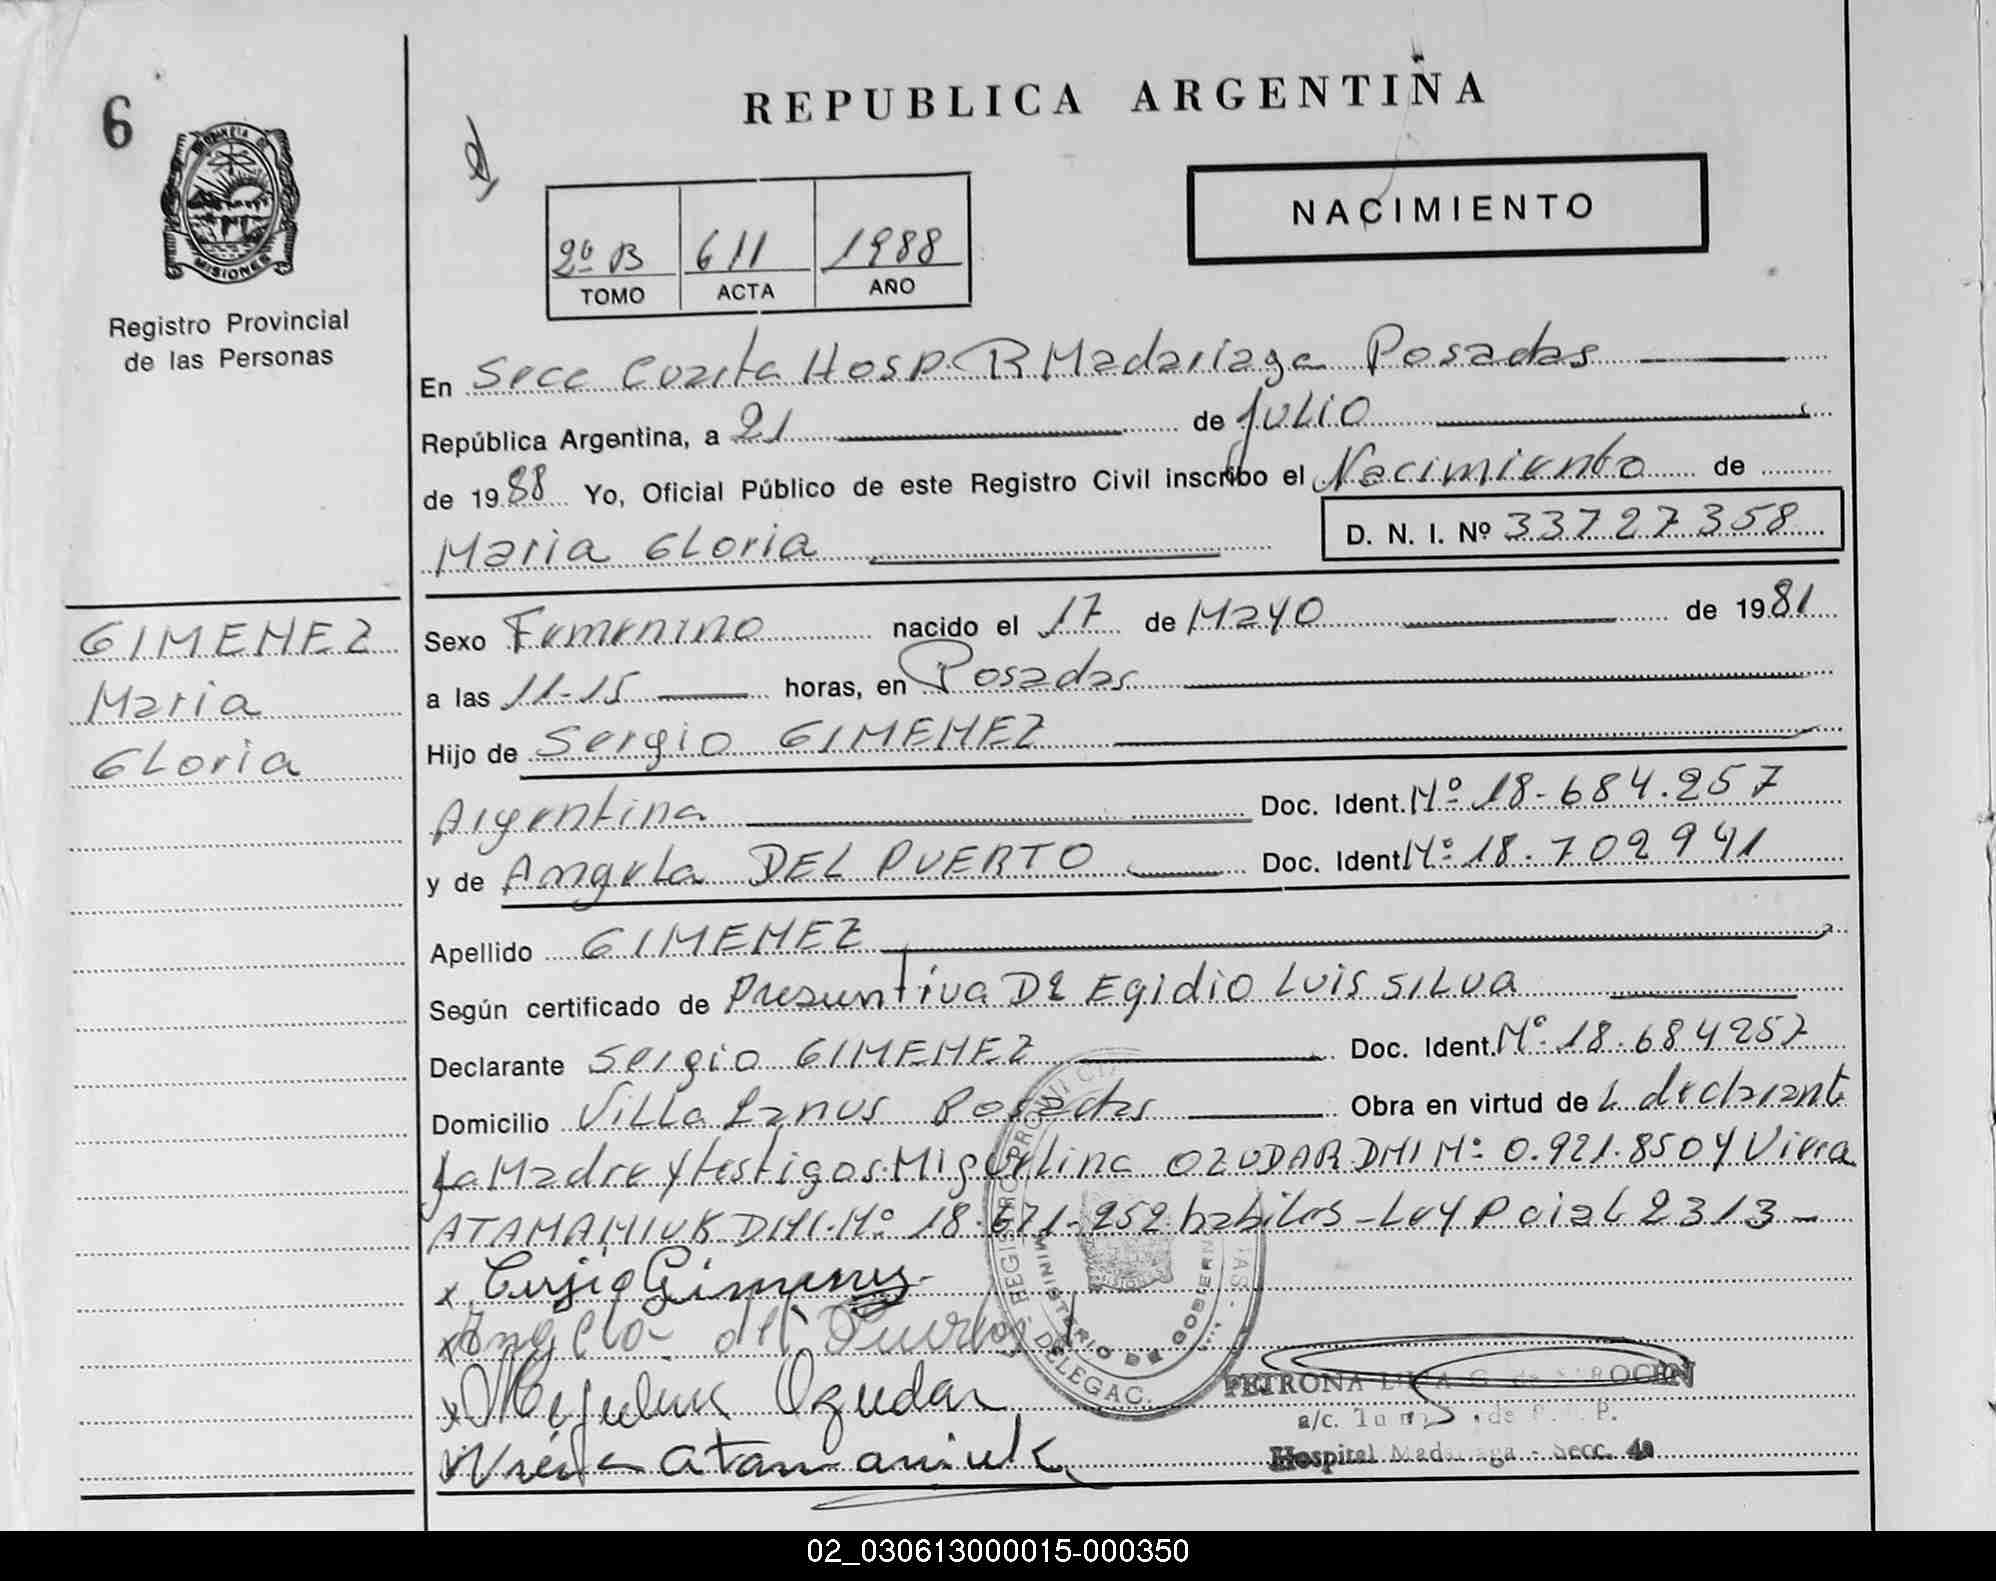 REPUBLICA ARGENTINA
6
PROVINCIA DE
MISIONES
Registro Provincial
de las Personas
2º B 611 1988
TOMO ACTA AÑO
NACIMIENTO
En Secc Cuarta Hosp. R Madariaga Posadas
República Argentina, a 21 de Julio
de 1988 Yo, Oficial Público de este Registro Civil inscribo el Nacimiento de
Maria Gloria D. N. I. Nº 33727358
GIMENEZ
Maria
Gloria
Sexo Femenino nacido el 17 de Mayo de 1981
a las 11-15 horas, en Posadas
Hijo de Sergio GIMENEZ
Argentina Doc. Ident. Nº 18.684.257
y de Angela DEL PUERTO Doc. Ident. Nº 18.702941
Apellido GIMENEZ
Según certificado de Presuntiva De Egidio Luis SILVA
Declarante Sergio GIMENEZ Doc. Ident. Nº 18.684257
Domicilio Villa Lanus Posadas Obra en virtud de L declarante
La Madre y testigos: Miguelina OZUDAR DNI Nº 0.921.850 y Viera
ATAMANIUK DNI. Nº 18.671.252 habiles - Ley Pcial 2313 -
x Cerjio Gimenez
x Angela del Puerto
x Miguelina Ozudar
x Viera atamaniuk
REGISTRO PROVINCIAL
DELEGAC.
MINISTERIO DE GOBIERN
PETRONA
a/c.
Hospital Madariaga - Secc. 4a
02_030613000015-000350